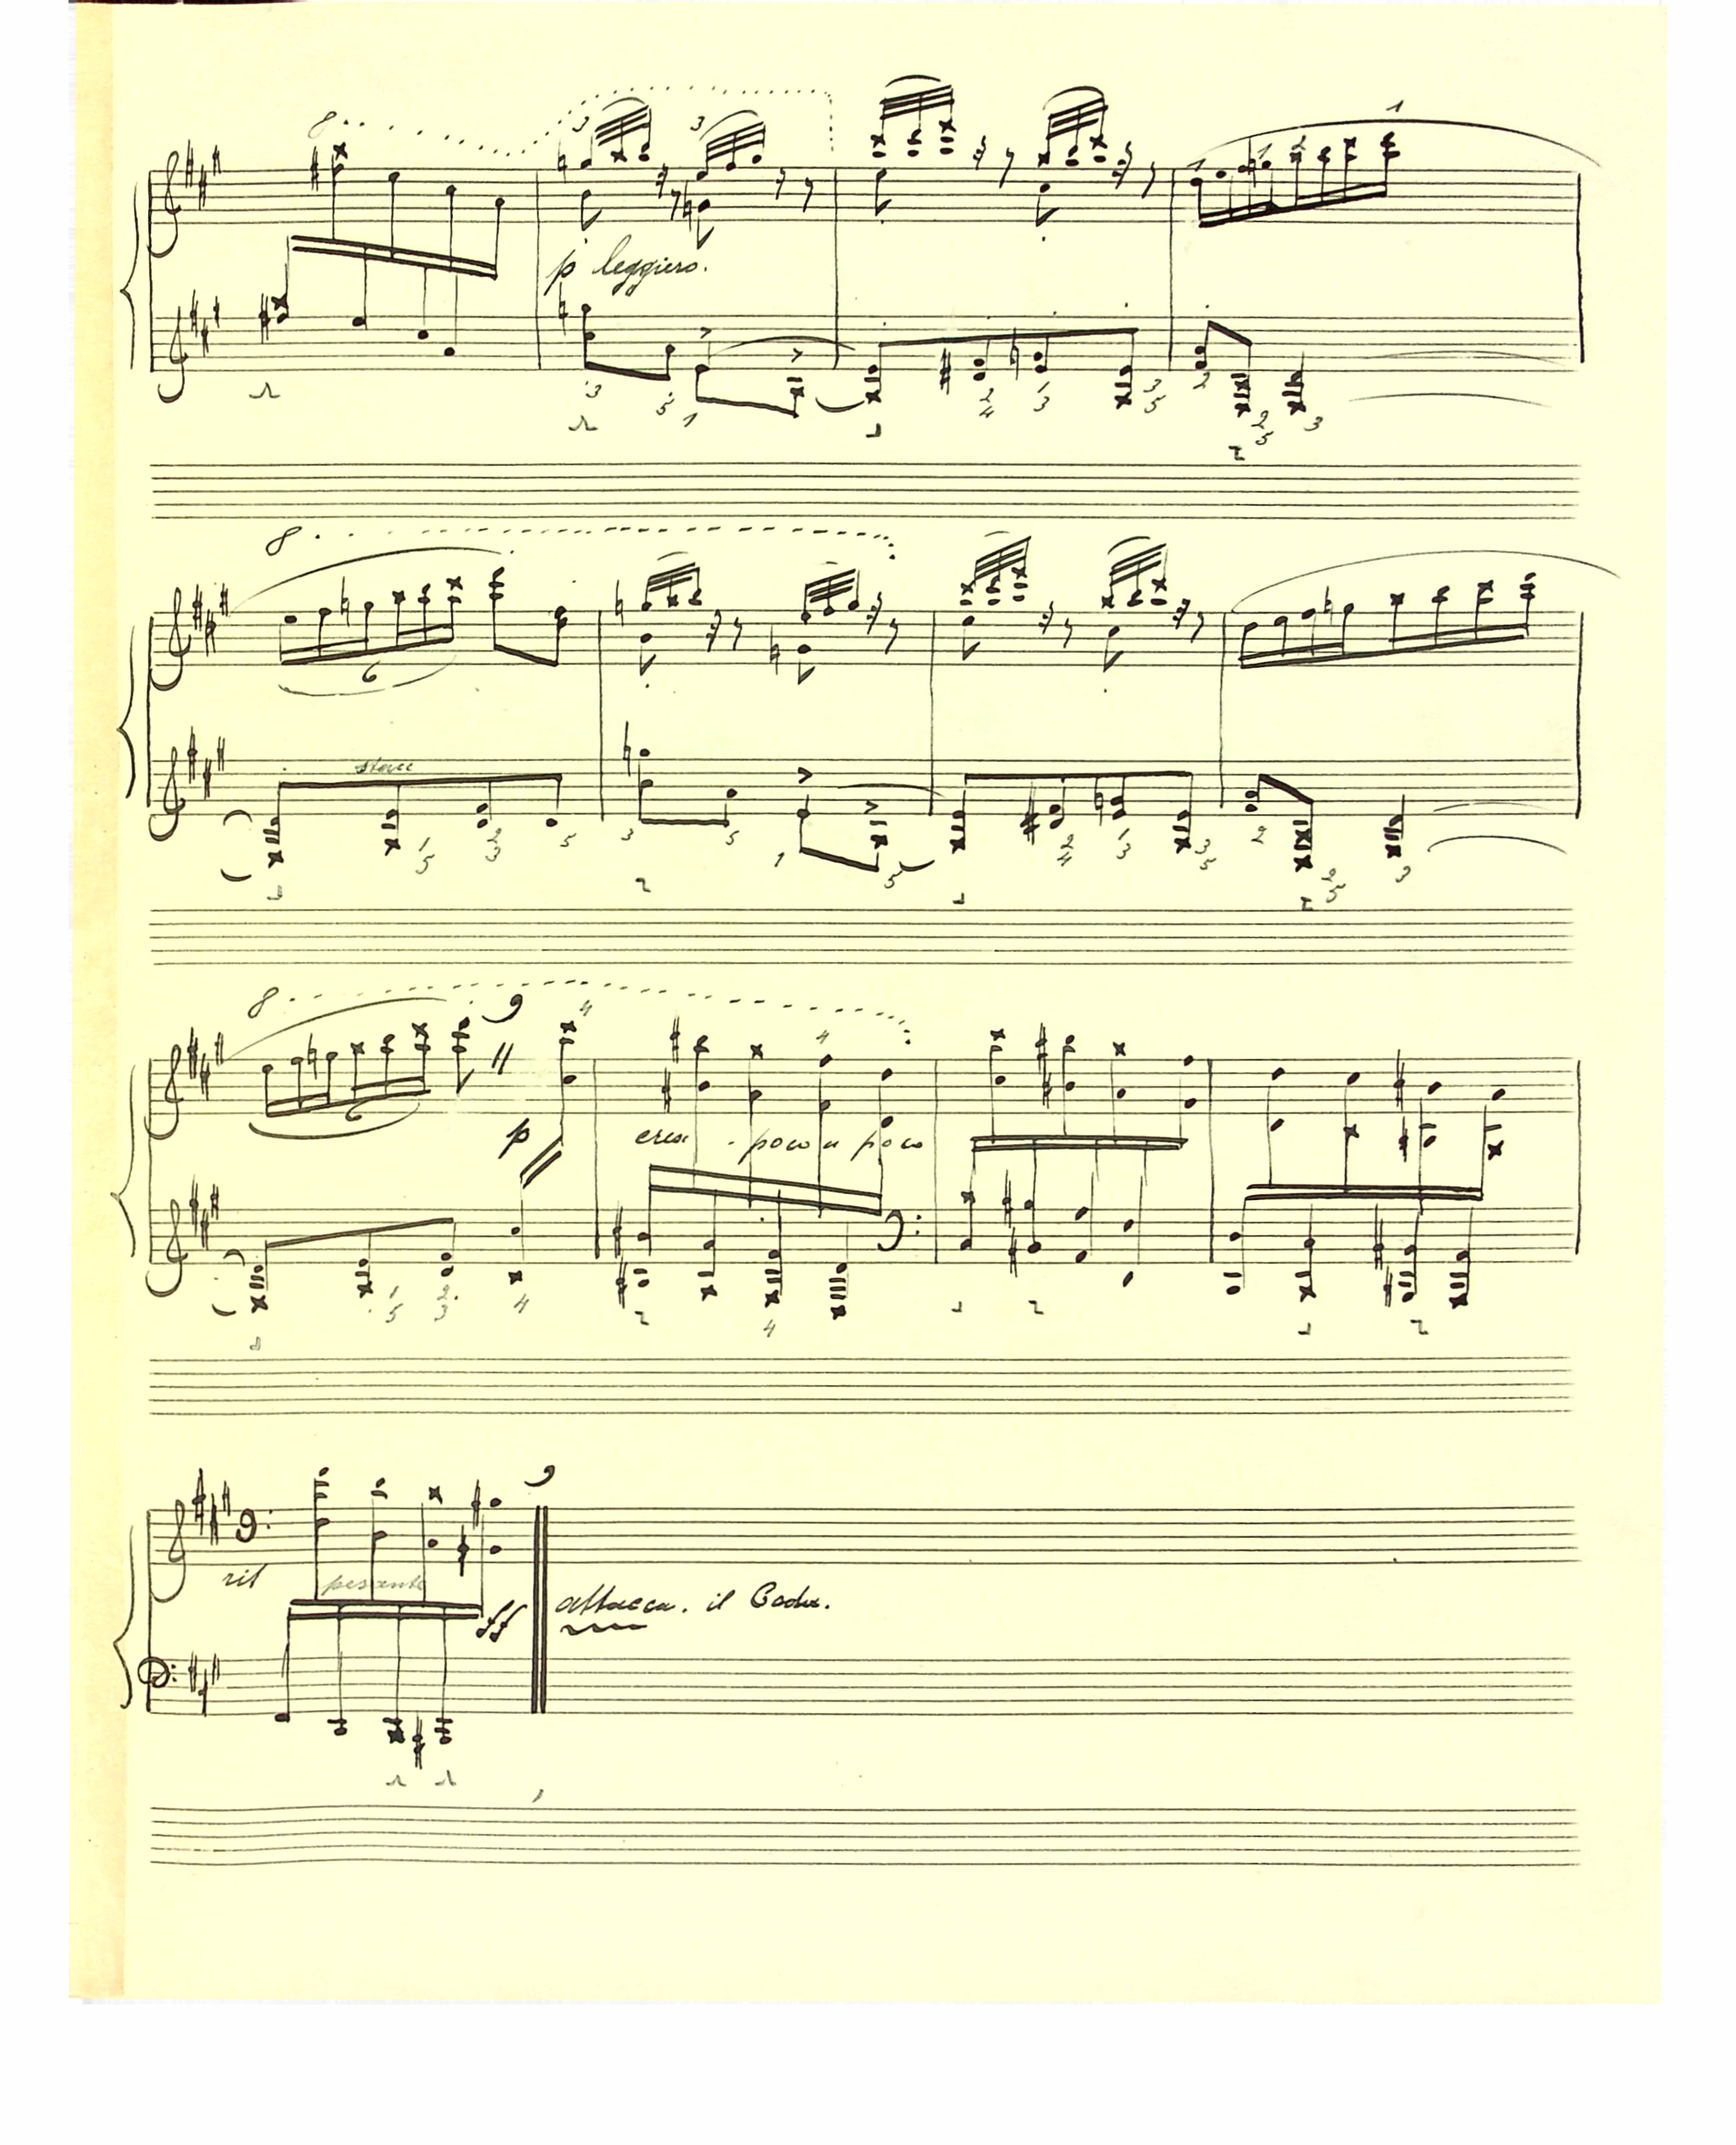 8
3 3 1
1 1 2
p leggiero.
3 5 1 2 4 1 3 3 5 2 2 5 3
8
6
stacc
1 5 2 3 5 3 5 1 5 2 4 1 3 3 5 2 2 5 3
8 4 4
6
p cresc - poco a poco
1 5 2 3 4 4
rit pesante
ff attacca. il Coda.